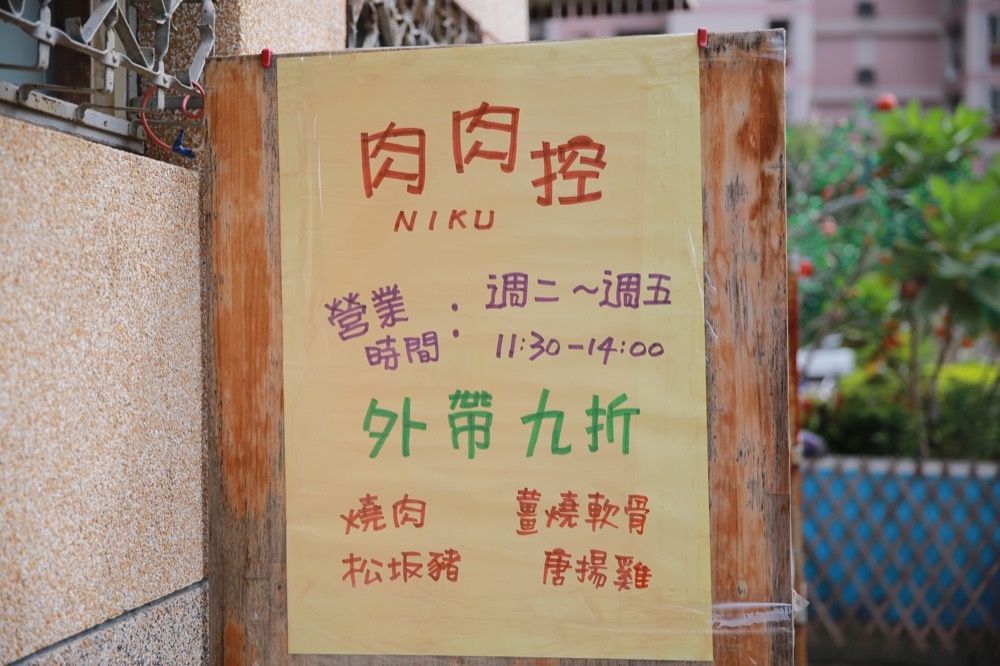 肉肉控
NIKU
營業時間：週二～週五
11:30-14:00
外帶九折
燒肉 薑燒軟骨
松坂豬 唐揚雞